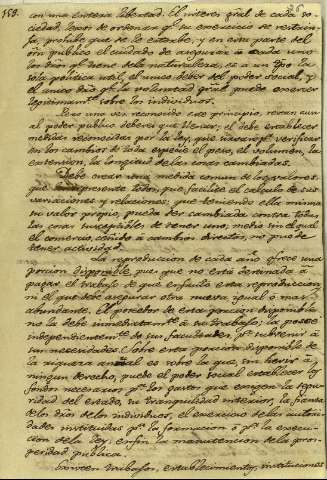 158.
con una entera libertad. El interes gral de cada so-
ciedad, lexos de ordenar qe su exercicio se restrin-
ja, prohibe que se le estorbe, y en esta parte del
orn público el cuidado de asegurar á cada uno
los dros qe tiene de la naturaleza, es a un tpo la
sola política util, el unico deber del poder social, y
el unico dro qe la voluntad gral puede exercer
legitimamte sobre los individuos.
Pero una vez reconocido este principio, restan aun
al poder publico deberes que llenar; el debe establecer
medidas reconocidas por la ley, que sirvan pa verificar
en los cambios de toda especie el peso, el volumen, la
extension, la longitud de las cosas cambiadas.
Debe crear una medida comun de los valores,
que los represente todos, que facilite el calculo de sus
variaciones y relaciones; que teniendo ella misma
su valor propio, pueda ser cambiada contra todas
las cosas susceptibles de tener uno, medio sin el qual
el comercio, ceñido á cambios directos, no puede
tener actividad.
La reproduccion de cada año ofrece una
porcion disponible pues que no está destinada á
pagar el trabajo de que es fruto esta reproduccion,
ni el que debe asegurar otra nueva igual ó mas
abundante. El poseedor de esta porcion disponible
no la debe inmediatamte á su trabajo; la posee
independientemte de sus facultades pa subvenir á
sus necesidades. Sobre esta porcion disponible de
la riqueza anual es sobre la que, sin herir á
ningun derecho, puede el poder social establecer los
fondos necesarios pa los gastos que exigen la segu-
ridad del Estado, su tranquilidad interior, la garantia
de los dros de los individuos, el exercicio de las autori-
dades instituidas pa la formacion ó pa la execu-
cion de la ley, en fin la manutencion de la pros-
peridad publica.
Existen trabajos, establecimientos, instituciones